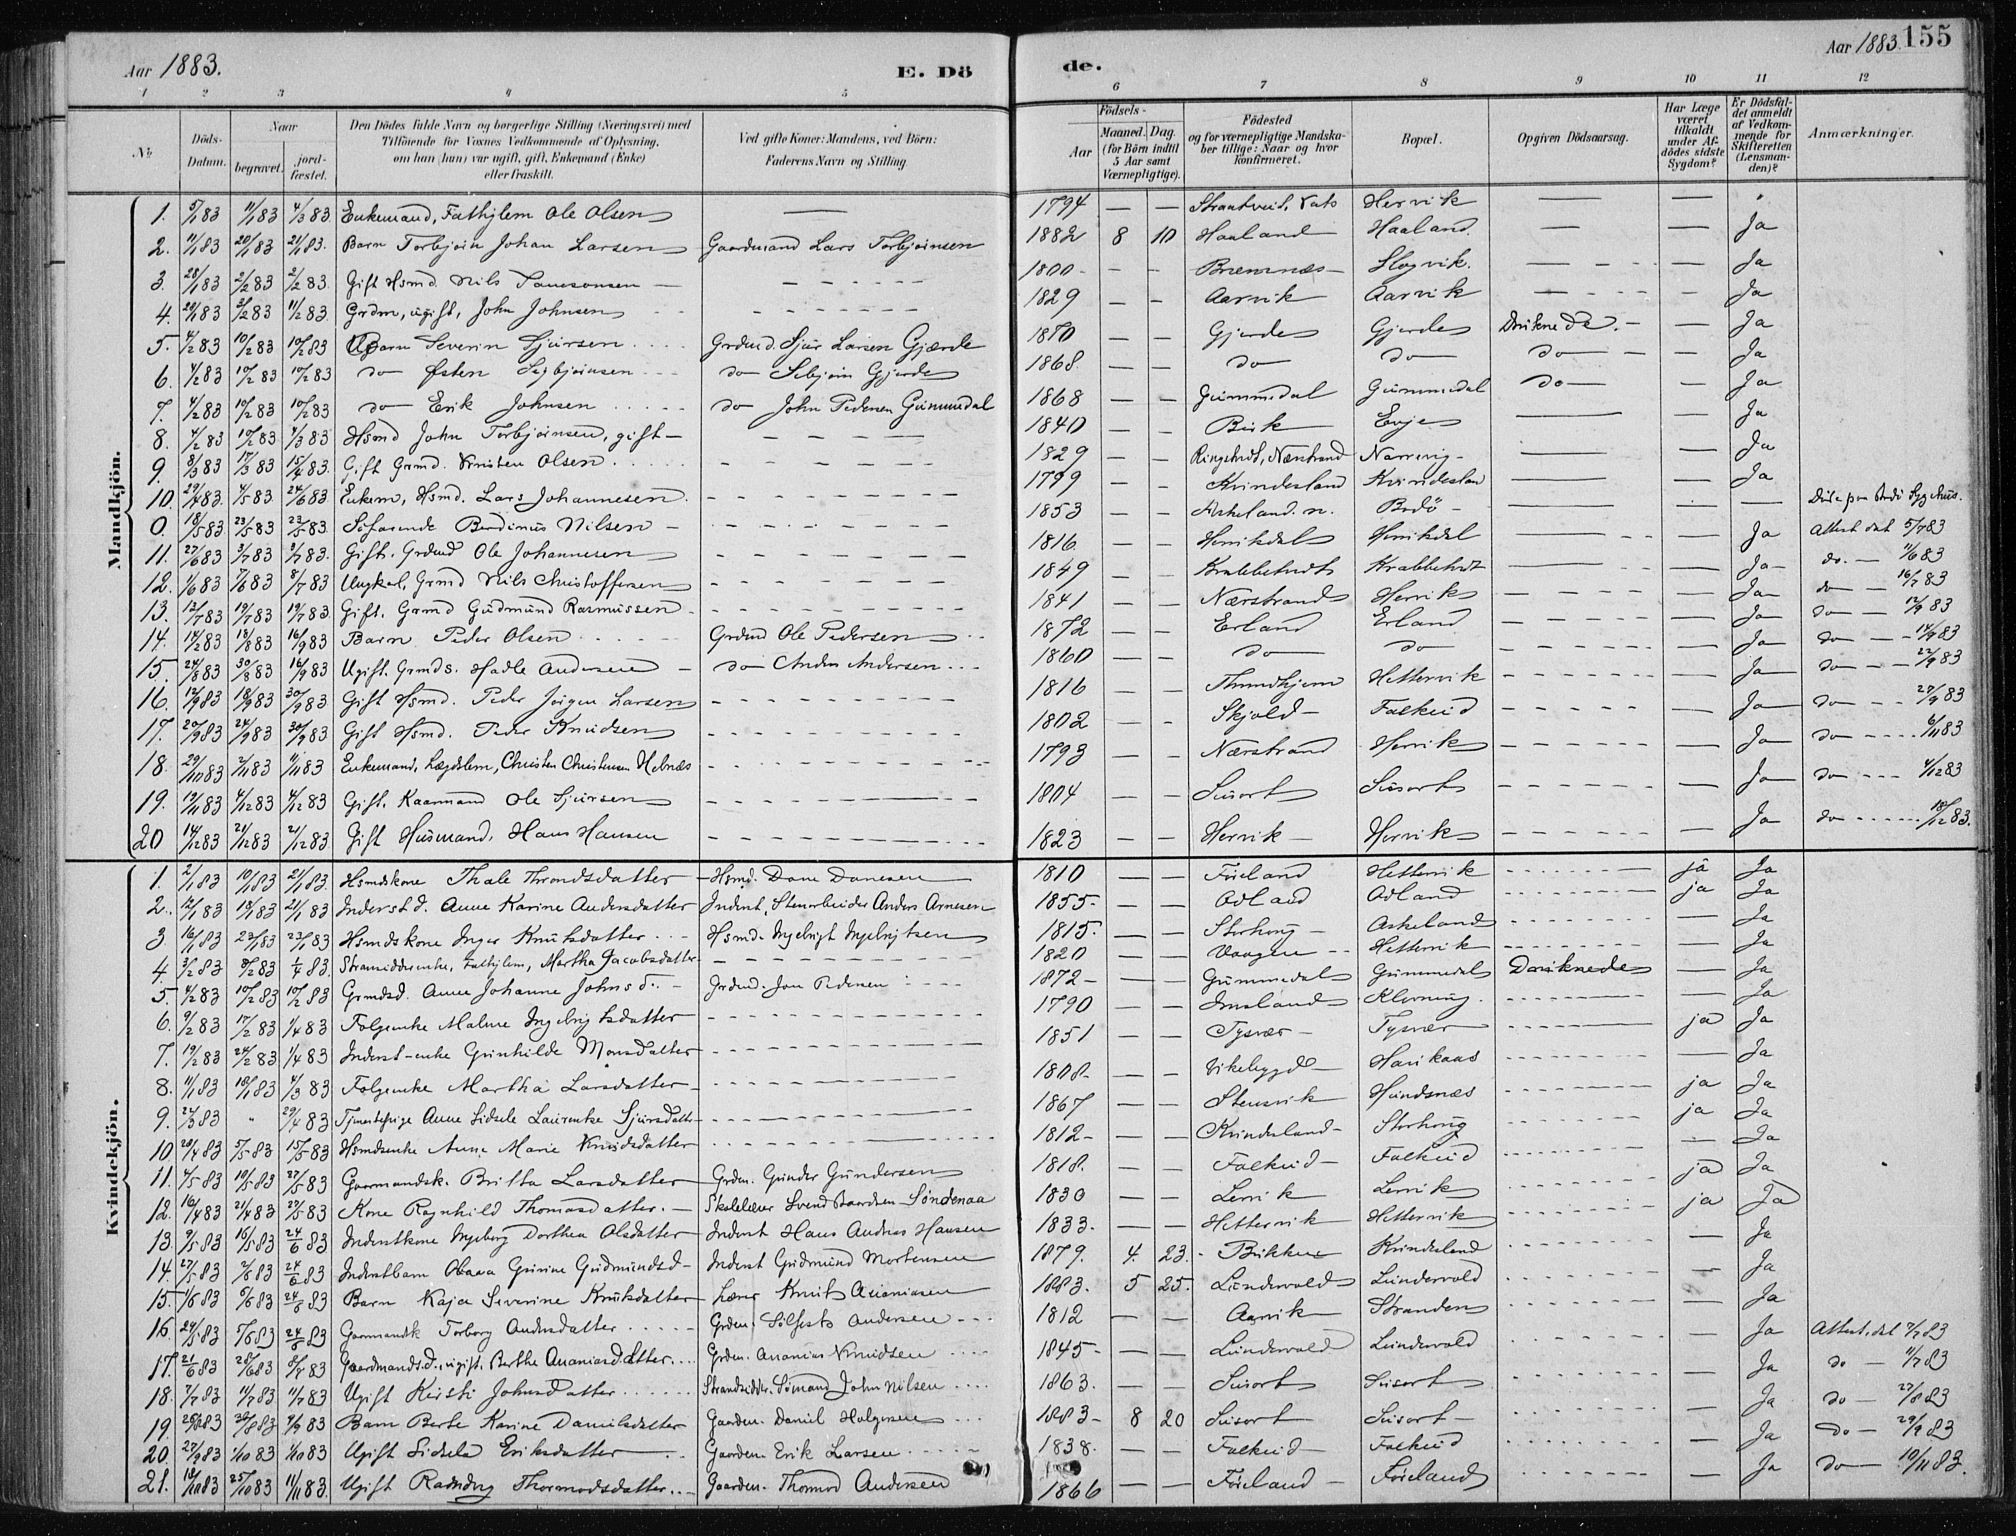 Aar 1883.
E. Döde.
Aar 1883. 155
1 2 3 4 5 6 7 8 9 10 11 12
No.
Döds-Datum.
Naar
begravet.
jordfæstet.
Den Dödes fulde Navn og borgerlige Stilling (Næringsvei) med Tilföiende for Voxnes Vedkommende af Oplysning, om han (hun) var ugift, gift, Enkemand (Enke) eller fraskilt.
Ved gifte Koner: Mandens, ved Börn: Faderens Navn og Stilling.
Födsels-
Aar
Maaned. Dag.
(for Börn indtil 5 Aar samt Værnepligtige).
Födested og for værnepligtige Mandskaber tillige: Naar og hvor konfirmeret.
Bopæl.
Opgiven Dödsaarsag.
Har Læge været tilkaldt under Afdödes sidste Sygdom?
Er Dödsfaldet anmeldt af Vedkommende for Skifteretten (Lensmanden)?
Anmærkninger.
Mandkjön.
1. 5/1 83 11/1 83 4/3 83 Enkemand, Fathjlem Ole Olsen — 1794 — — Hervik — —
2. 11/1 83 20/1 83 21/1 83. Barn Torbjøin Johan Larsen Gaardmand Lars Torbjøinsen 1882 8 10 Haaland Haaland. — — Ja
3. 28/1 83 2/2 83 2/2 83 Gift Hsmd. Nils 1800 - - Bremnæs Slogvik. — Ja
4. 83 3/2 83 11/2 83 Grdm, ugift, John Johnsen 1829 — - Aarvik Aarvik — Ja
5. 4/2 83 10/2 83 10/2 83 Barn Severin Sjursen Grdmd. Sjur Larsen Gjærde 1870 — — Gjerde Gjerde Druknede. — Ja
6. 4/2 83 10/2 83 10/2 83 do Østen do Gjerde 1868. — — do do do — Ja
7. 4/2 83 10/2 83 10/2 83 do Erik Johnsen do John Pedersen Gummedal 1868 — — Gummedal Gummedal do — Ja
8. 4/2 83 10/2 83 4/3 83 Hsmd John Torbjøinsen, gift 1840 — — Birk — Ja
9. 8/3 83 17/3 83 15/4 83. Gift Grmd. Kristen Olsen 1829 — — Nærstrand — Ja
10. 29/4 83. 4/5 83 24/6 83 Enkem, Hsmd. Lars Johannesen. 1799 — — Kvindesland — Ja
0. 18/5 83 23/5 83 23/5 83. Søfarende Nilsen 1853 — — Bodö — —
11. 27/6 83 3/7 83 3/7 83. Gift. Grdmd Ole Johannesen 1816 — — Henriksdal Henriksdal — Ja Attest dat 5/7 83
12. 1/6 83 7/6 83 8/7 83 Ungkal, Grmd Nils Christoffersen 1849 — — — Ja do. — 11/6 83
13. 12/7 83 19/7 83 19/7 83 Gift. Grmd Gudmund Rasmussen 1841 — — Nærstrand Hervik — Ja do — 16/7 83
14. 83 18/8 83 16/9 83 Barn Peder Olsen Grdmd Ole Pedersen 1872 — — Erland Erland — Ja do — 12/9 83
15. 24/8 83 30/8 83 16/9 83 Ugift. Grmds. Hadle Andersen do Anders Andersen 1860 — — do do — Ja do — 14/9 83
16. 12/9 83 18/9 83 30/9 83 Gift Hsmd. Peder Jörgen Larsen 1816 — — Hettervik — Ja do — 22/9 83
17. 20/9 83 24/9 83 30/9 83 Gift Hsmd. Peder Knudsen 1802 — - Skjold Falkeid — Ja do — 27/9 83
18. 29/10 83 2/11 83 11/11 83 Enkemand, Lægdslem, Christen Christensen Helnæs 1793 — — Nærstrand Hervik — Ja do 6/11 83
19. 19/11 83 4/12 83 4/12 83 Gift. Kaarmand Ole Sjursen 1804 — — Susort Susort — Ja do 4/12 83
20 14/12 83 21/12 83 21/12 83 Gift Husmand, Hans Hansen 1823 — — Hervik Hervik — Ja do 18/12 83.
Kvindekjön.
1. 2/1 83 10/1 83 21/1 83. Hsmdskone Thale Throndsdatter Hsmd. Dane Danesen 1810 — — Føieland Hettervik ja Ja
2. 12/1 83 18/1 83 21/1 83 Inderst d. Anne Karine Andersdatter Inderst, Stenarbeider Anders Arnesen 1855. — — Odland Odland ja Ja
3 16/1 83 23/1 83 23/1 83 Hsmdskone Inger Knutsdatter Hsmd. Ingebrigt Ingebrigtsen 1815. — — Storhoug Askeland — Ja
4. 3/2 83 8/2 83 1/4 83. Strandsidderenke, Fathjlem, Martha Jacobsdatter 1820 — — Hettervik — Ja
5. 4/2 83 10/2 83 10/2 83 Grmdsd. Anne Johanne Johnsd. Grdmd. Jon Pedersen 1872 — — Gummedal Gummedal Druknede — Ja
6. 9/2 83 17/2 83 1/4 83 Folgeenke Malene Ingebrigtsdatter 1790 — — Imsland Klovning. — Ja
7. 19/2 83 24/2 83 1/4 83 Inderst-enke Gunhilde Monsdatter 1851 — — Tysvær Tysvær ja Ja
8. 11/1 83 18/1 83 4/3 83 Folgeenke Martha Larsdatter 1808. — — Vikebygd — Ja
9. 24/3 83 " 29/4 83 Tjenestepige Anne Sidsele Laurenke Sjursdatter 1867 — — Stensvik Hundsnæs ja Ja
10. 28/4 83 5/5 83 15/5 83 Hsmdsenke Anne Marie Knudsdatter 1812 — — Kvindesland Storhoug ja Ja
11. 4/5 83 10/5 83 27/5 83 Gaarmandsk. Britta Larsdatter Grdm. Gunder Gundersen 1818. — — Falkeid Falkeid — Ja
12. 16/4 83 21/4 83 27/5 83 Kone Ragnhild Thomasdatter. Skolelærer Svend Baardsen Söndenaa 1830 — — Lervik Lervik ja Ja
13. 9/5 83 16/5 83 24/6 83 Inderstkone Ingeborg Dorthea Olsdatter Inderst Hans Andreas Hansen 1833. — — Hettervik Hettervik ja Ja
14. 27/5 83 2/6 83 24/6 83 Inderstbarn Gurine Gudmundsd Inderst Gudmund Mortensen 1879. 4. 23. Kvindesland — Ja
15. 1/6 83 6/6 83 24/6 83 Barn Kaja Severine Knutsdatter Lærer Knut Ananiasen 1883. 5 25. Lundevold Lundevold — Ja
16. 24/5 83 7/6 83 24/6 83 Gaarmandk Torborg Andersdatter Grdm. Andersen 1812 — — Aarvik Stranden — Ja
17. 21/6 83 28/6 83 8/7 83 Gaardmandsd. ugift. Berthe Ananiasdatter Grdm. Ananias Knudsen 1845 — — Lundevold Lundevold — Ja Attest. dat 7/7 83
18. 7/7 83 11/7 83 11/7 83 Ugift Kirsti Johnsdatter Strandsidder. Sömand John Nilsen 1863. — — Susort Susort — Ja do — 11/7 83
19. 83 83 83 Barn Berte Karine Danielsdatter Gaardm. Daniel Holgersen 1883 8 20 Susort Susort — Ja do — 27/8 83
20. 27/9 83 1/10 83 1/10 83 Ugift Sidsela Eriksdatter Gaardm. Erik Larsen 1838. — — Falkeid Falkeid — Ja do — 29/9 83
21. 18/10 83 25/10 83 11/11 83. Ugift Thormodsdatter Gaardm. Thomod Andersen 1866 — — Føieland Føieland — Ja do — 10/11 83.